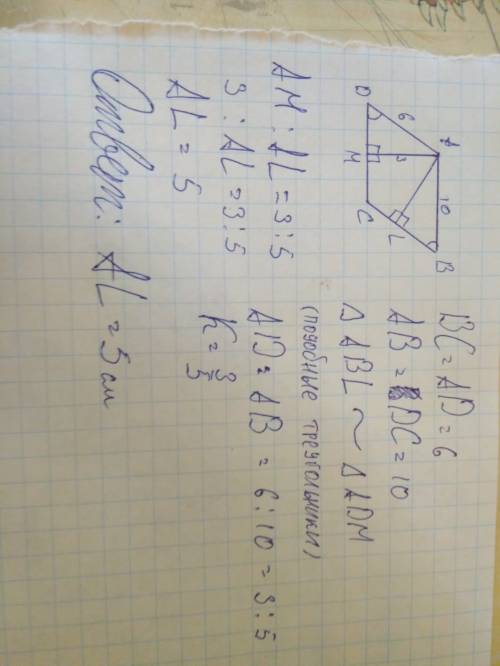 A 10 B
6 3 L
D M C
BC = AD = 6
AB = DC = 10
△ABL ~ △ADM
(подобные треугольники)
AD = AB = 6:10 = 3:5
K = 3/5
AM : AL = 3:5
3 : AL = 3:5
AL = 5
Ответ: AL = 5 см